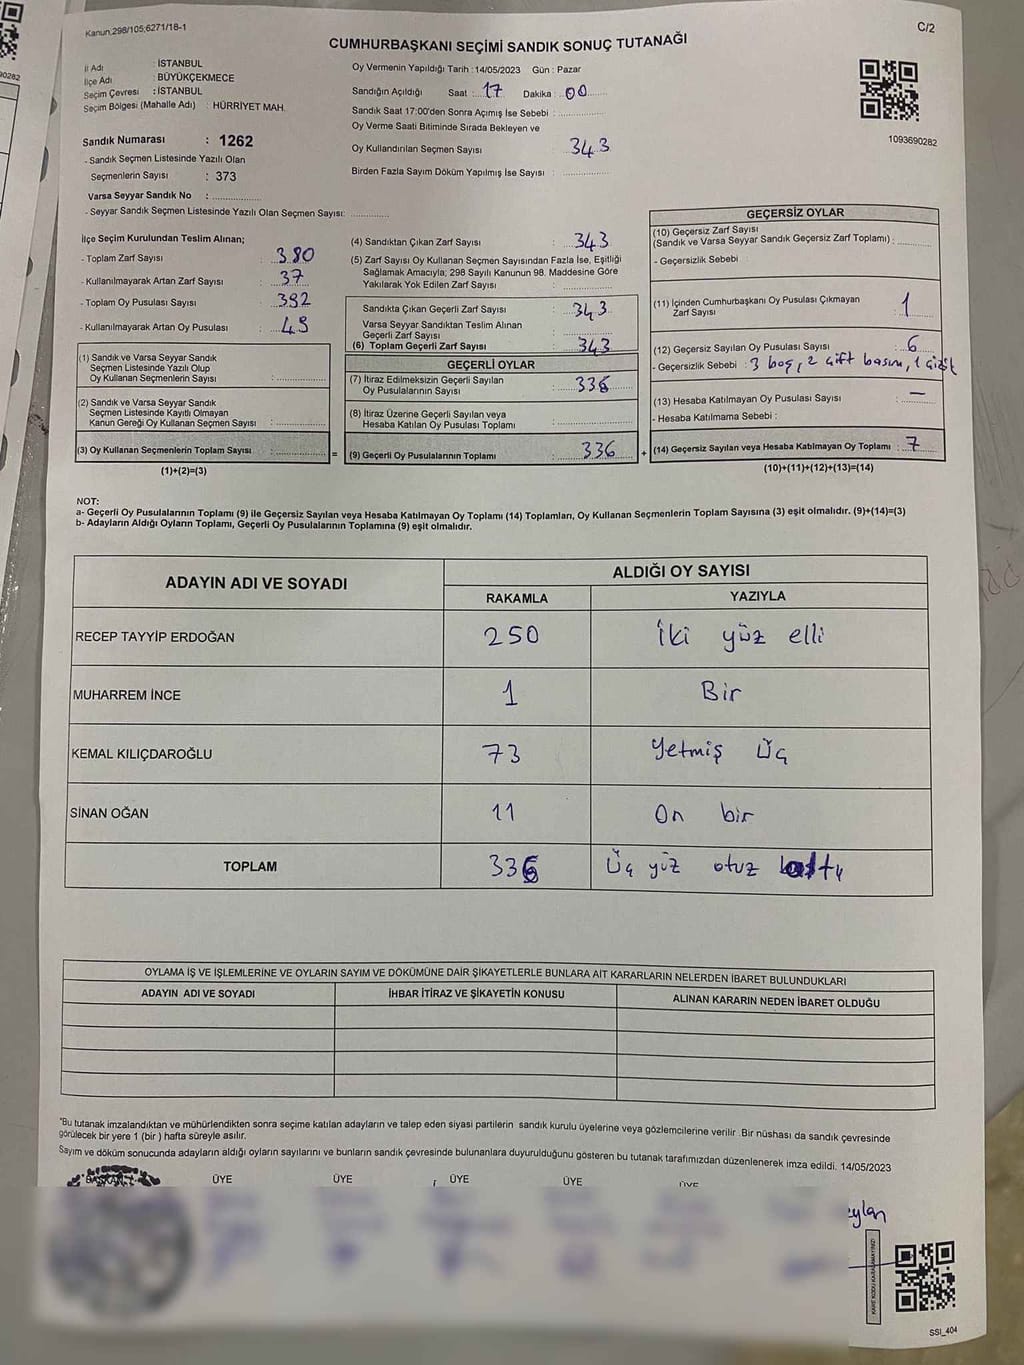 Kanun,298/105;6271/18-1
C/2
CUMHURBAŞKANI SEÇİMİ SANDIK SONUÇ TUTANAĞI
İl Adı : İSTANBUL
İlçe Adı : BÜYÜKÇEKMECE
Seçim Çevresi : İSTANBUL
Seçim Bölgesi (Mahalle Adı) : HÜRRİYET MAH.
Oy Vermenin Yapıldığı Tarih : 14/05/2023 Gün : Pazar
Sandığın Açıldığı Saat : 17 Dakika : 00
Sandık Saat 17:00'den Sonra Açımış İse Sebebi :
Oy Verme Saati Bitiminde Sırada Bekleyen ve
Oy Kullandırılan Seçmen Sayısı : 343
Birden Fazla Sayım Döküm Yapılmış İse Sayısı :
1093690282
Sandık Numarası : 1262
- Sandık Seçmen Listesinde Yazılı Olan
Seçmenlerin Sayısı : 373
Varsa Seyyar Sandık No :
- Seyyar Sandık Seçmen Listesinde Yazılı Olan Seçmen Sayısı:
İlçe Seçim Kurulundan Teslim Alınan;
- Toplam Zarf Sayısı : 380
- Kullanılmayarak Artan Zarf Sayısı : 37
- Toplam Oy Pusulası Sayısı : 392
- Kullanılmayarak Artan Oy Pusulası : 49
(1) Sandık ve Varsa Seyyar Sandık
Seçmen Listesinde Yazılı Olup
Oy Kullanan Seçmenlerin Sayısı :
(2) Sandık ve Varsa Seyyar Sandık
Seçmen Listesinde Kayıtlı Olmayan
Kanun Gereği Oy Kullanan Seçmen Sayısı :
(3) Oy Kullanan Seçmenlerin Toplam Sayısı :
(1)+(2)=(3)
=
(4) Sandıktan Çıkan Zarf Sayısı : 343
(5) Zarf Sayısı Oy Kullanan Seçmen Sayısından Fazla İse, Eşitliği
Sağlamak Amacıyla; 298 Sayılı Kanunun 98. Maddesine Göre
Yakılarak Yok Edilen Zarf Sayısı :
Sandıkta Çıkan Geçerli Zarf Sayısı : 343
Varsa Seyyar Sandıktan Teslim Alınan
Geçerli Zarf Sayısı :
(6) Toplam Geçerli Zarf Sayısı : 343
GEÇERLİ OYLAR
(7) İtiraz Edilmeksizin Geçerli Sayılan
Oy Pusulalarının Sayısı : 336
(8) İtiraz Üzerine Geçerli Sayılan veya
Hesaba Katılan Oy Pusulası Toplamı :
(9) Geçerli Oy Pusulalarının Toplamı : 336
+
GEÇERSİZ OYLAR
(10) Geçersiz Zarf Sayısı
(Sandık ve Varsa Seyyar Sandık Geçersiz Zarf Toplamı) :
- Geçersizlik Sebebi :
(11) İçinden Cumhurbaşkanı Oy Pusulası Çıkmayan
Zarf Sayısı : 1
(12) Geçersiz Sayılan Oy Pusulası Sayısı : 6
- Geçersizlik Sebebi : 3 boş, 2 çift basım, 1 çizik
(13) Hesaba Katılmayan Oy Pusulası Sayısı : –
- Hesaba Katılmama Sebebi :
(14) Geçersiz Sayılan veya Hesaba Katılmayan Oy Toplamı : 7
(10)+(11)+(12)+(13)=(14)
NOT:
a- Geçerli Oy Pusulalarının Toplamı (9) ile Geçersiz Sayılan veya Hesaba Katılmayan Oy Toplamı (14) Toplamları, Oy Kullanan Seçmenlerin Toplam Sayısına (3) eşit olmalıdır. (9)+(14)=(3)
b- Adayların Aldığı Oyların Toplamı, Geçerli Oy Pusulalarının Toplamına (9) eşit olmalıdır.
ADAYIN ADI VE SOYADI
ALDIĞI OY SAYISI
RAKAMLA YAZIYLA
RECEP TAYYİP ERDOĞAN 250 İki yüz elli
MUHARREM İNCE 1 Bir
KEMAL KILIÇDAROĞLU 73 Yetmiş Üç
SİNAN OĞAN 11 On bir
TOPLAM 336 Üç yüz otuz
OYLAMA İŞ VE İŞLEMLERİNE VE OYLARIN SAYIM VE DÖKÜMÜNE DAİR ŞİKAYETLERLE BUNLARA AİT KARARLARIN NELERDEN İBARET BULUNDUKLARI
ADAYIN ADI VE SOYADI İHBAR İTİRAZ VE ŞİKAYETİN KONUSU ALINAN KARARIN NEDEN İBARET OLDUĞU
"Bu tutanak imzalandıktan ve mühürlendikten sonra seçime katılan adayların ve talep eden siyasi partilerin sandık kurulu üyelerine veya gözlemcilerine verilir. Bir nüshası da sandık çevresinde
görülecek bir yere 1 (bir) hafta süreyle asılır.
Sayım ve döküm sonucunda adayların aldığı oyların sayılarını ve bunların sandık çevresinde bulunanlara duyurulduğunu gösteren bu tutanak tarafımızdan düzenlenerek imza edildi. 14/05/2023
BAŞKAN ÜYE ÜYE ÜYE ÜYE ÜYE
SSI_404